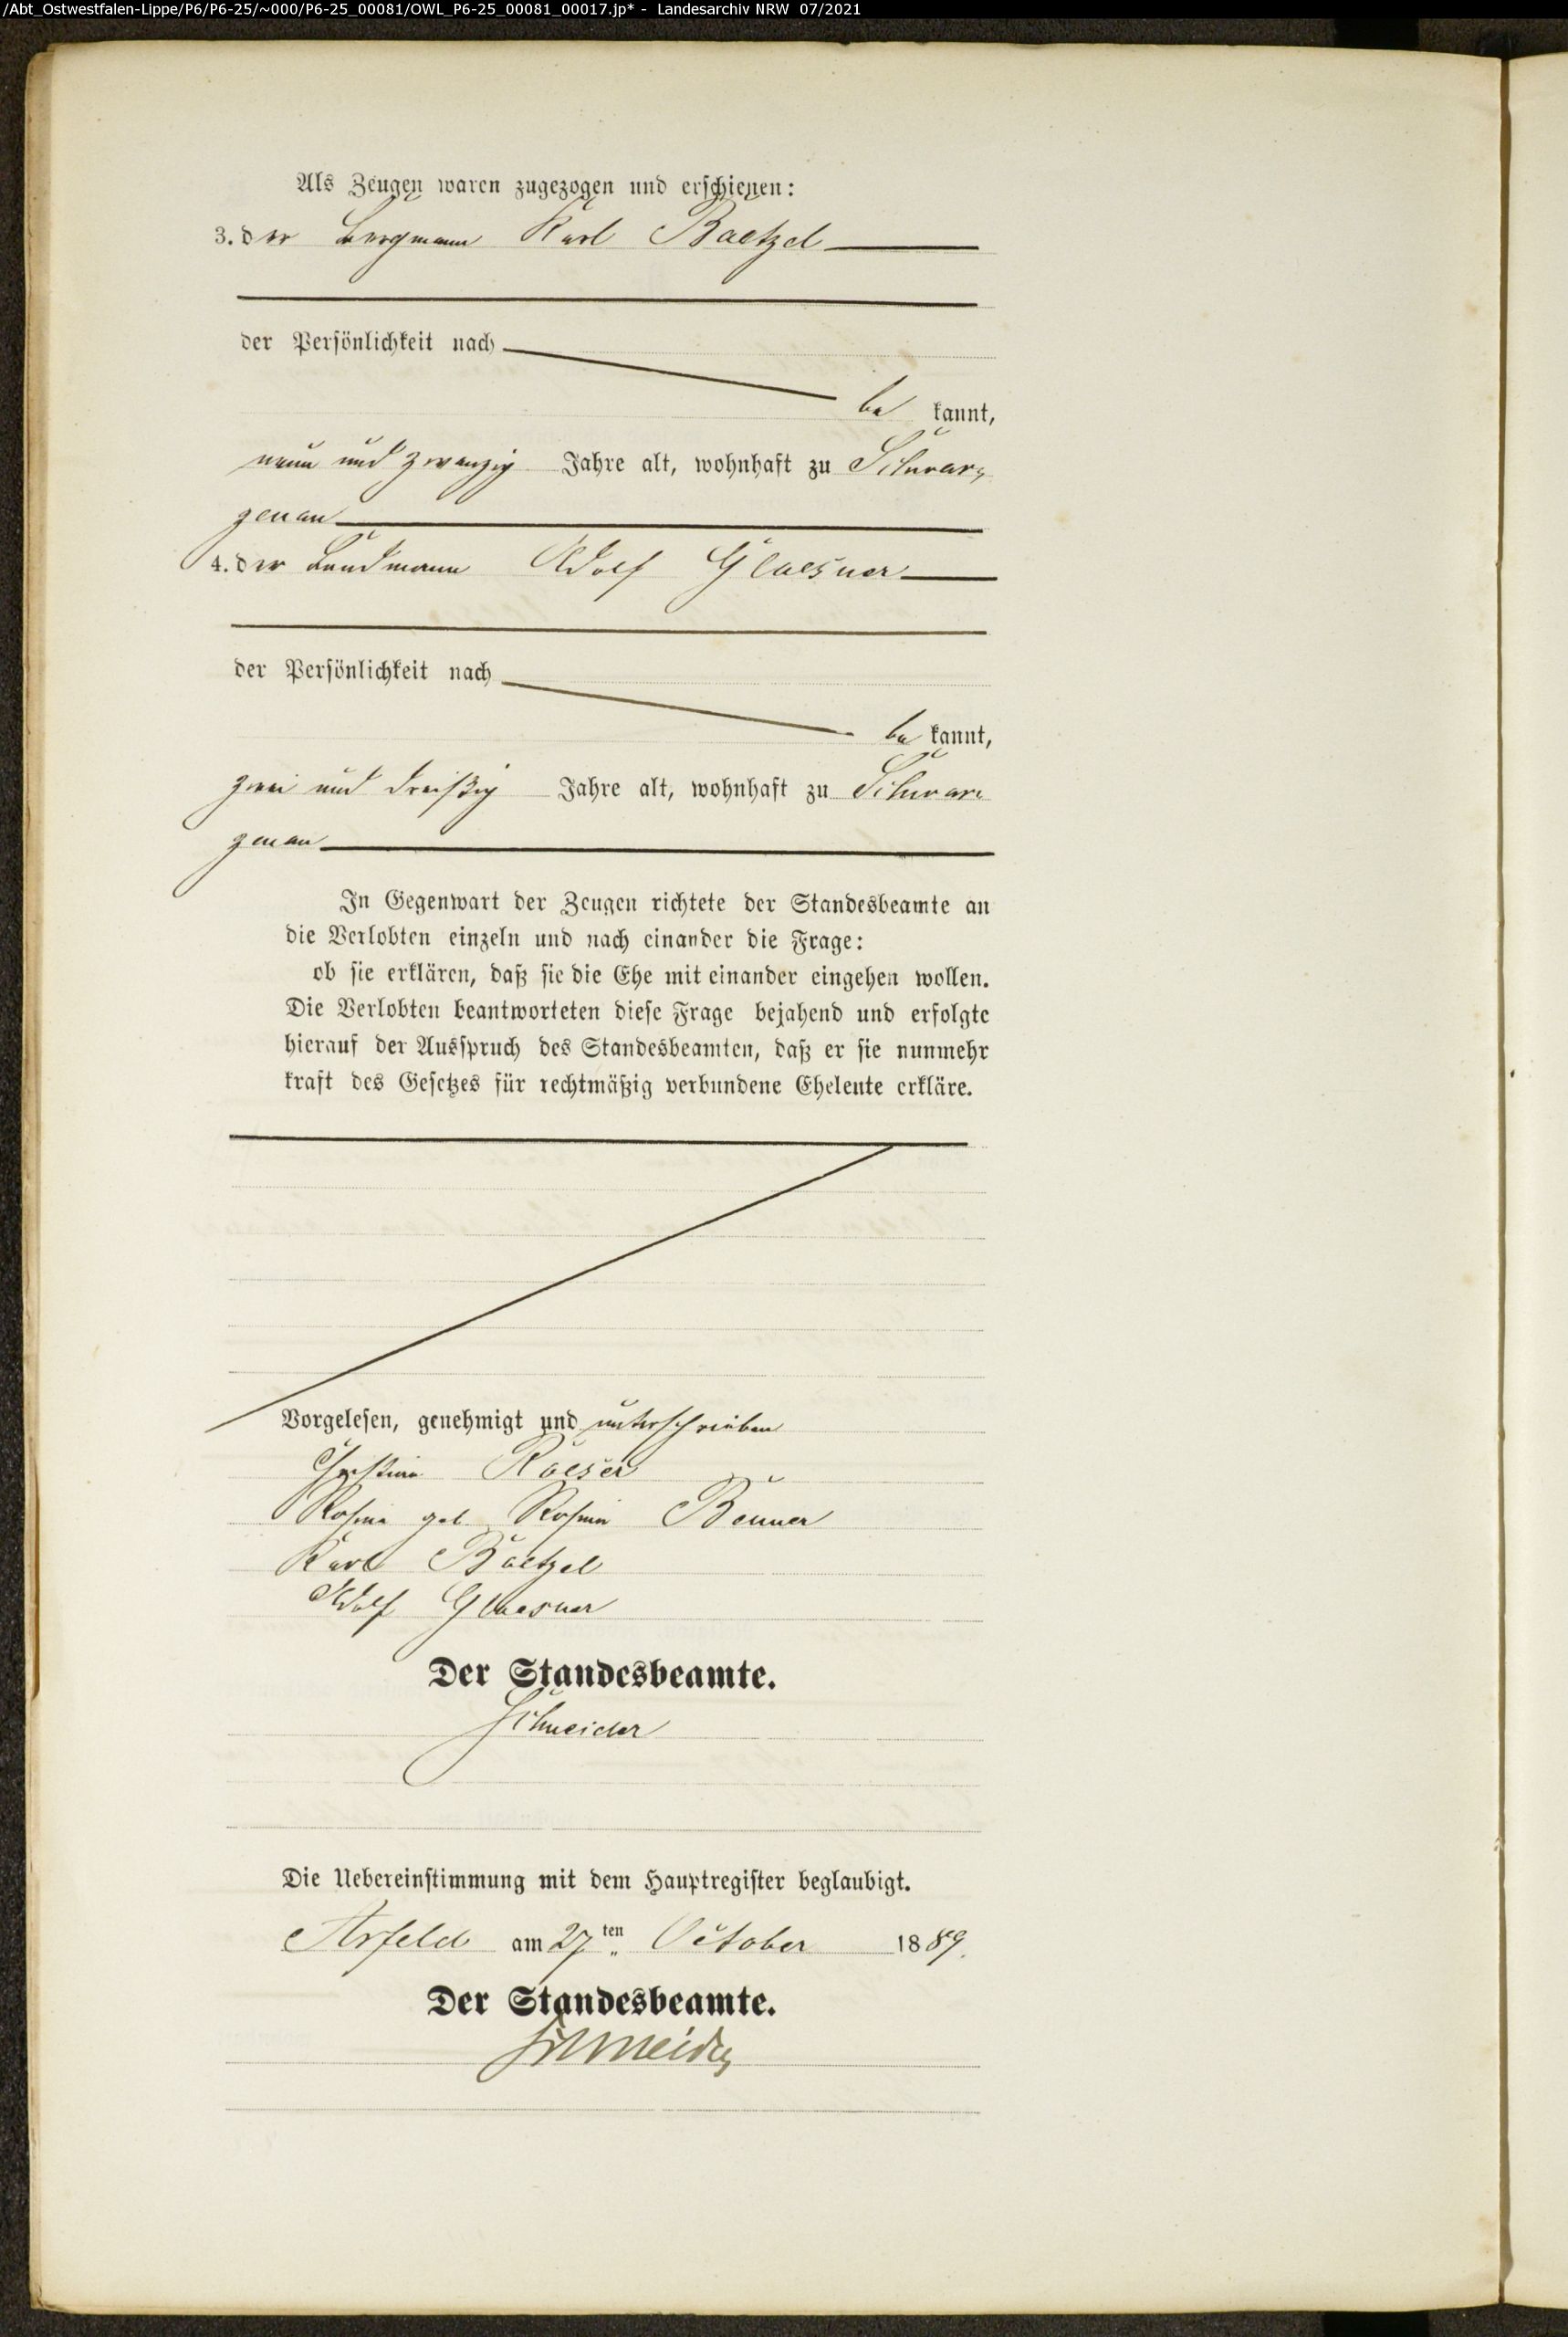 /Abt_Ostwestfalen-Lippe/P6/P6-25/~000/P6-25_00081/OWL_P6-25_00081_00017.jp* - Landesarchiv NRW 07/2021
Als Zeugen waren zugezogen und erschienen:
3. der Bergmann Karl Baetzel
der Persönlichkeit nach
be kannt,
neun und zwanzig Jahre alt, wohnhaft zu Schwar
zenau
4. der Landmann Adolf Glaesner
der Persönlichkeit nach
be kannt,
zwei und dreißig Jahre alt, wohnhaft zu Schwar
zenau
In Gegenwart der Zeugen richtete der Standesbeamte an
die Verlobten einzeln und nach einander die Frage:
ob sie erklären, daß sie die Ehe mit einander eingehen wollen.
Die Verlobten beantworteten diese Frage bejahend und erfolgte
hierauf der Ausspruch des Standesbeamten, daß er sie nunmehr
kraft des Gesetzes für rechtmäßig verbundene Eheleute erkläre.
Vorgelesen, genehmigt und unterschrieben
Roeser
geb. Benner
Karl Baetzel
Adolf Glaesner
Der Standesbeamte.
Schneider
Die Uebereinstimmung mit dem Hauptregister beglaubigt.
Arfeld am 27ten October 1889.
Der Standesbeamte.
Schneider